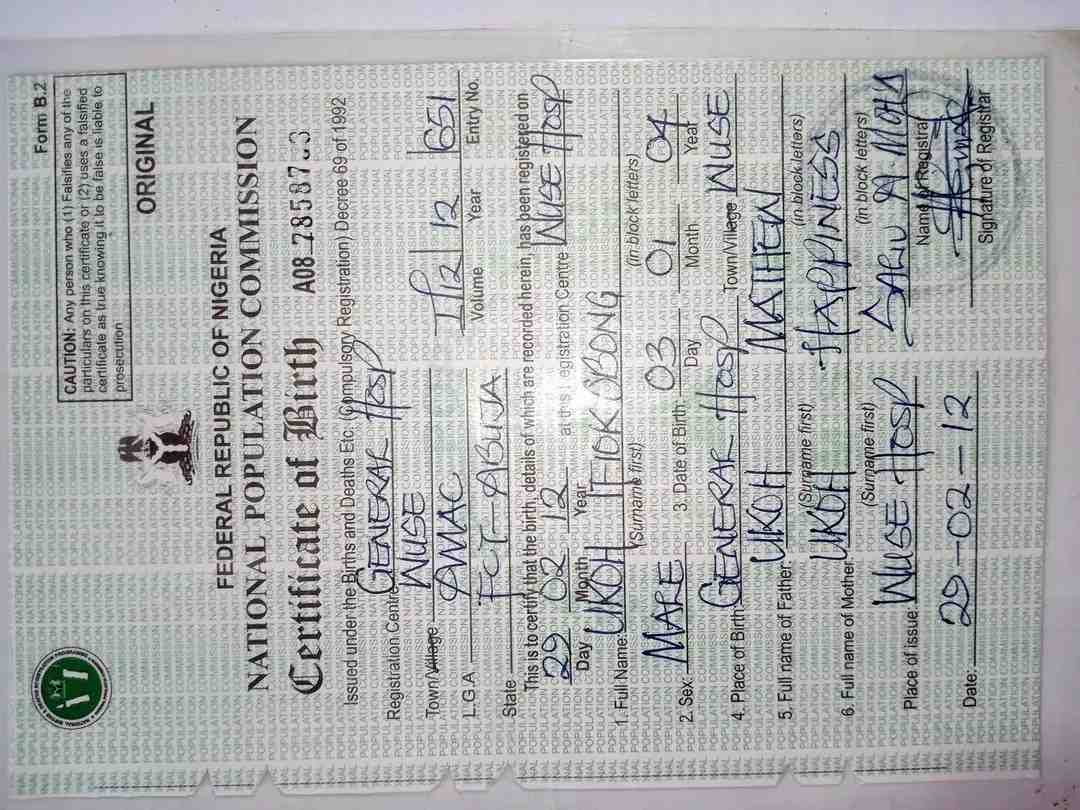 Form B.2
CAUTION: Any person who (1) Falsifies any of the
particulars on this certificate or (2) uses a falsified
certificate as true knowing it to be false is liable to
prosecution
ORIGINAL
FEDERAL REPUBLIC OF NIGERIA
NATIONAL POPULATION COMMISSION
Certificate of Birth A08
Issued under the Births and Deaths Etc. (Compulsory Registration) Decree 69 of 1992
Registration Centre GENERAL HOSP
WUSE
Town/Village
L.G.A AMAC 12 651
State FCT-ABUJA Volume Year Entry No.
This is to certify that the birth, details of which are recorded herein, has been registered on
29 02 12 at this registration Centre WUSE HOSP
Day Month Year
1. Full Name: UKOH ITIOKOBONG
(surname first) (in block letters)
2. Sex: MALE 3. Date of Birth: 03 01 04
Day Month Year
4. Place of Birth GENERAL HOSP Town/Village WUSE
5. Full name of Father: UKOH MATTHEW
(Surname first) (in block letters)
6. Full name of Mother UKOH HAPPINESS
(Surname first) (in block letters)
Place of issue: WUSE HOSP
Name of Registrar
Date: 29-02-12
Signature of Registrar